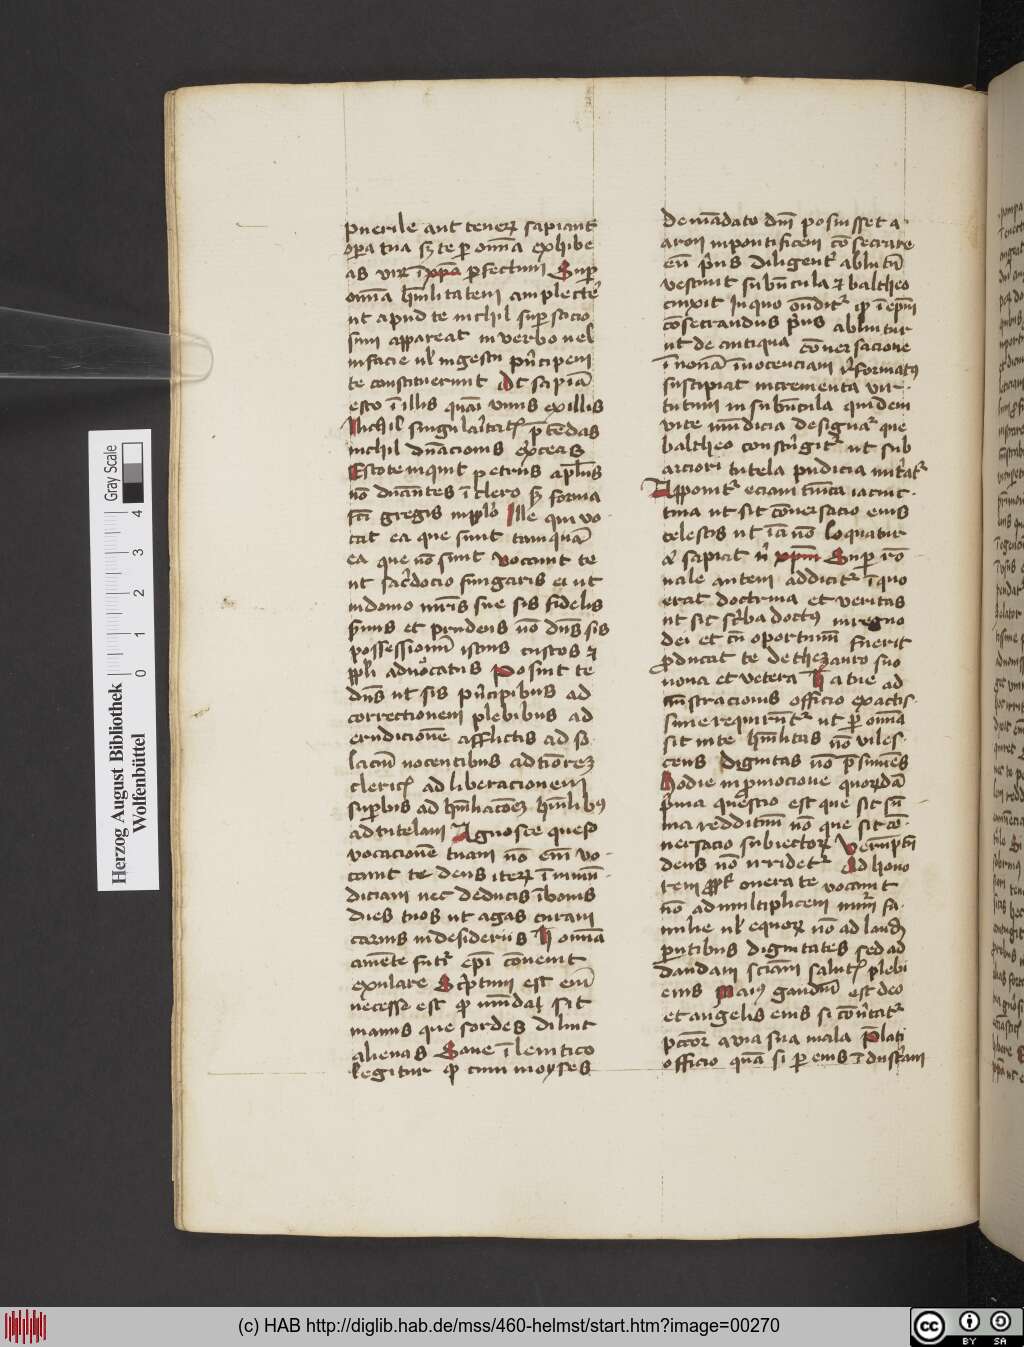 puerile aut teneꝝ sapiant
oꝑa tua sꝫ te ꝑ om̄ia exhibe
as viꝝ ī xpō ꝑfectum Suꝑ
om̄ia hūilitatem amplectēˀ
ut apud te nichil suꝑ facio
sum appareat in verbo uel
in facie ul̓ in gestu pn̄cipem
te constituerunt At sapiā
esto ī illis quasi vnus ex illis
Nichil singularitatꝭ p̄tēdas
nichil dn̄acionis ex̓ceas
Estote inquit petrus apl̄us
nō dn̄antes ī clero sꝫ forma
fc̄i gregis
Ille qui vo
cat ea que sunt tamquā
ea que nō sunt vocauit te
ut sac̓docio fungaris ei ut
in domo mr̄is sue sis fidelis
s̄uus et prudens nō dn̄s sis
possessionū istius custos ⁊
ppl̓i aduocatus Posuit te
dn̄s ut sis pn̄cipibus ad
correctionem plebibus ad
erudicionē afflictis ad so
laciū nocentibus ad tiōreꝫ
clericꝭ ad liberacionem
suꝑbis ad hūiliacōeꝫ hūilibꝰ
ad tutelam Agnosce queso
vocacionē tuam nō em̄ vo
cauit te deus iteꝝ ī inmūn
diciam nec deducis ī bonis
dies tuos ut agas curam
carnis in desideriis h̄ om̄ia
a mēte futˀ ep̄i cōuenit
exulare Sc̓ptum est em̄
necesse est ꝙ mūdaꝭ sit
manus que sordes diluit
alienas Sane ī leuitico
legitur ꝙ cum moyses
de mādato dn̄i posuisset a
aron in pontificem cōsecrare
eū p̓us diligentˀ ablutū
vestiuit subūcula ⁊ baltheo
cinxit In quo on̄ditˀ ꝙ ī ep̄m
cōsecrandus p̓us abluitur
ut de antiqua cōuersacione
ī nouā īnocenciam r̓formatꝰ
suscipiat incrementa vir
tutum in subūcula quidem
vite mūdicia designatˀ que
baltheo constr̓gitˀ ut sub
arciori tutela pudicia mr̓atˀ
Apponitˀ eciam tunica iacint
tina ut sit cōuersacio eius
celestis ut iā nō loquatur
uˀ sapiat nˀ xpm Suꝑ ro
nale autem addicitˀ ī quo
erat doctrina et veritas
ut sit sc̓ba doctꝰ in regno
dei et cū oportunū fuerit
ꝓducat te de thezauro suo
noua et vetera H a die ad
mīstracionis officio exactis
sime requirūtˀ ut ꝑ om̄ia
sit in te hūilitas nō viles
cens dignitas nō p̄sumēs
Hodie in ꝓmocione quorūdā
p̓ma questio est que sit sū
ma reddituū nō que sit cō
uersacio subiectoꝝ Veruptn̄
deus nō irridetˀ Ad hono
rem ꝓpt̓ onera te vocauit
nō ad multiplicem nūm̄ fa
milie ul̓ equoꝝ nō ad laudꝭ
ꝑutibus dignitates sed ad
dandam sciām salutꝭ plebi
eius Maiꝰ gaudiū est deo
et angelis eius si cōu̓tatˀ
pctōr a via sua mala Plati
officio quā si ꝑ eius īdustˀam
(c) HAB http://diglib.hab.de/mss/460-helmst/start.htm?image=00270
Herzog August Bibliothek
Wolfenbüttel
0 1 2 3 4
Gray Scale
cc
BY SA